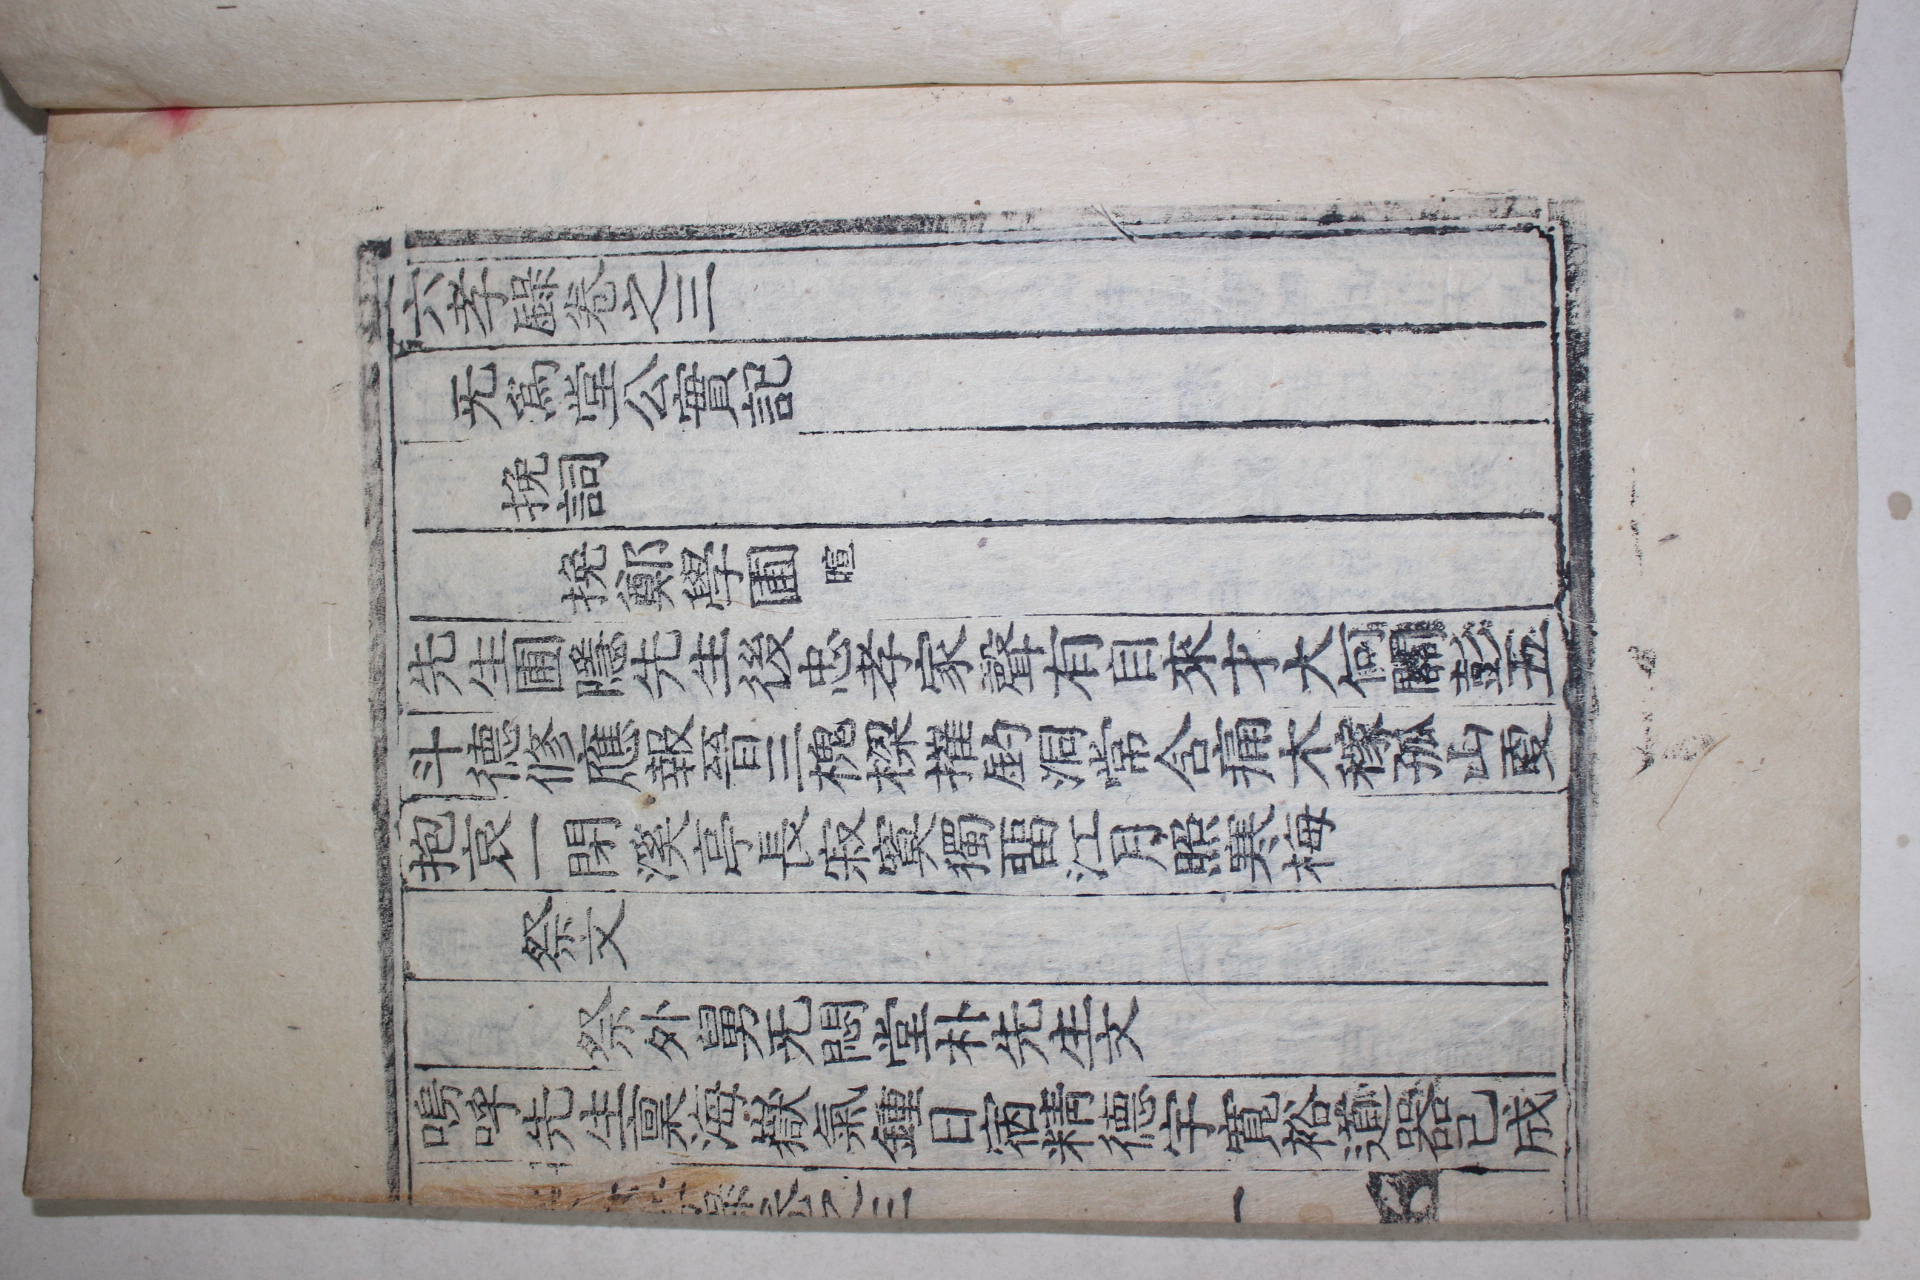 六孝錄卷之三
无爲堂公實記
挽詞
挽鄭學圃 暄
先生圃隱先生後忠孝家聲有自來才大何關登五
斗德修應報晉三槐樑摧鈞洞常含痛木稼孤山更
抱哀一閑溪亭長寂寞獨留江月照寒梅
祭文
祭外舅无悶堂朴先生文
嗚呼先生禀海嶽氣鍾日宿精德宇寬裕器已成
卷之三 一